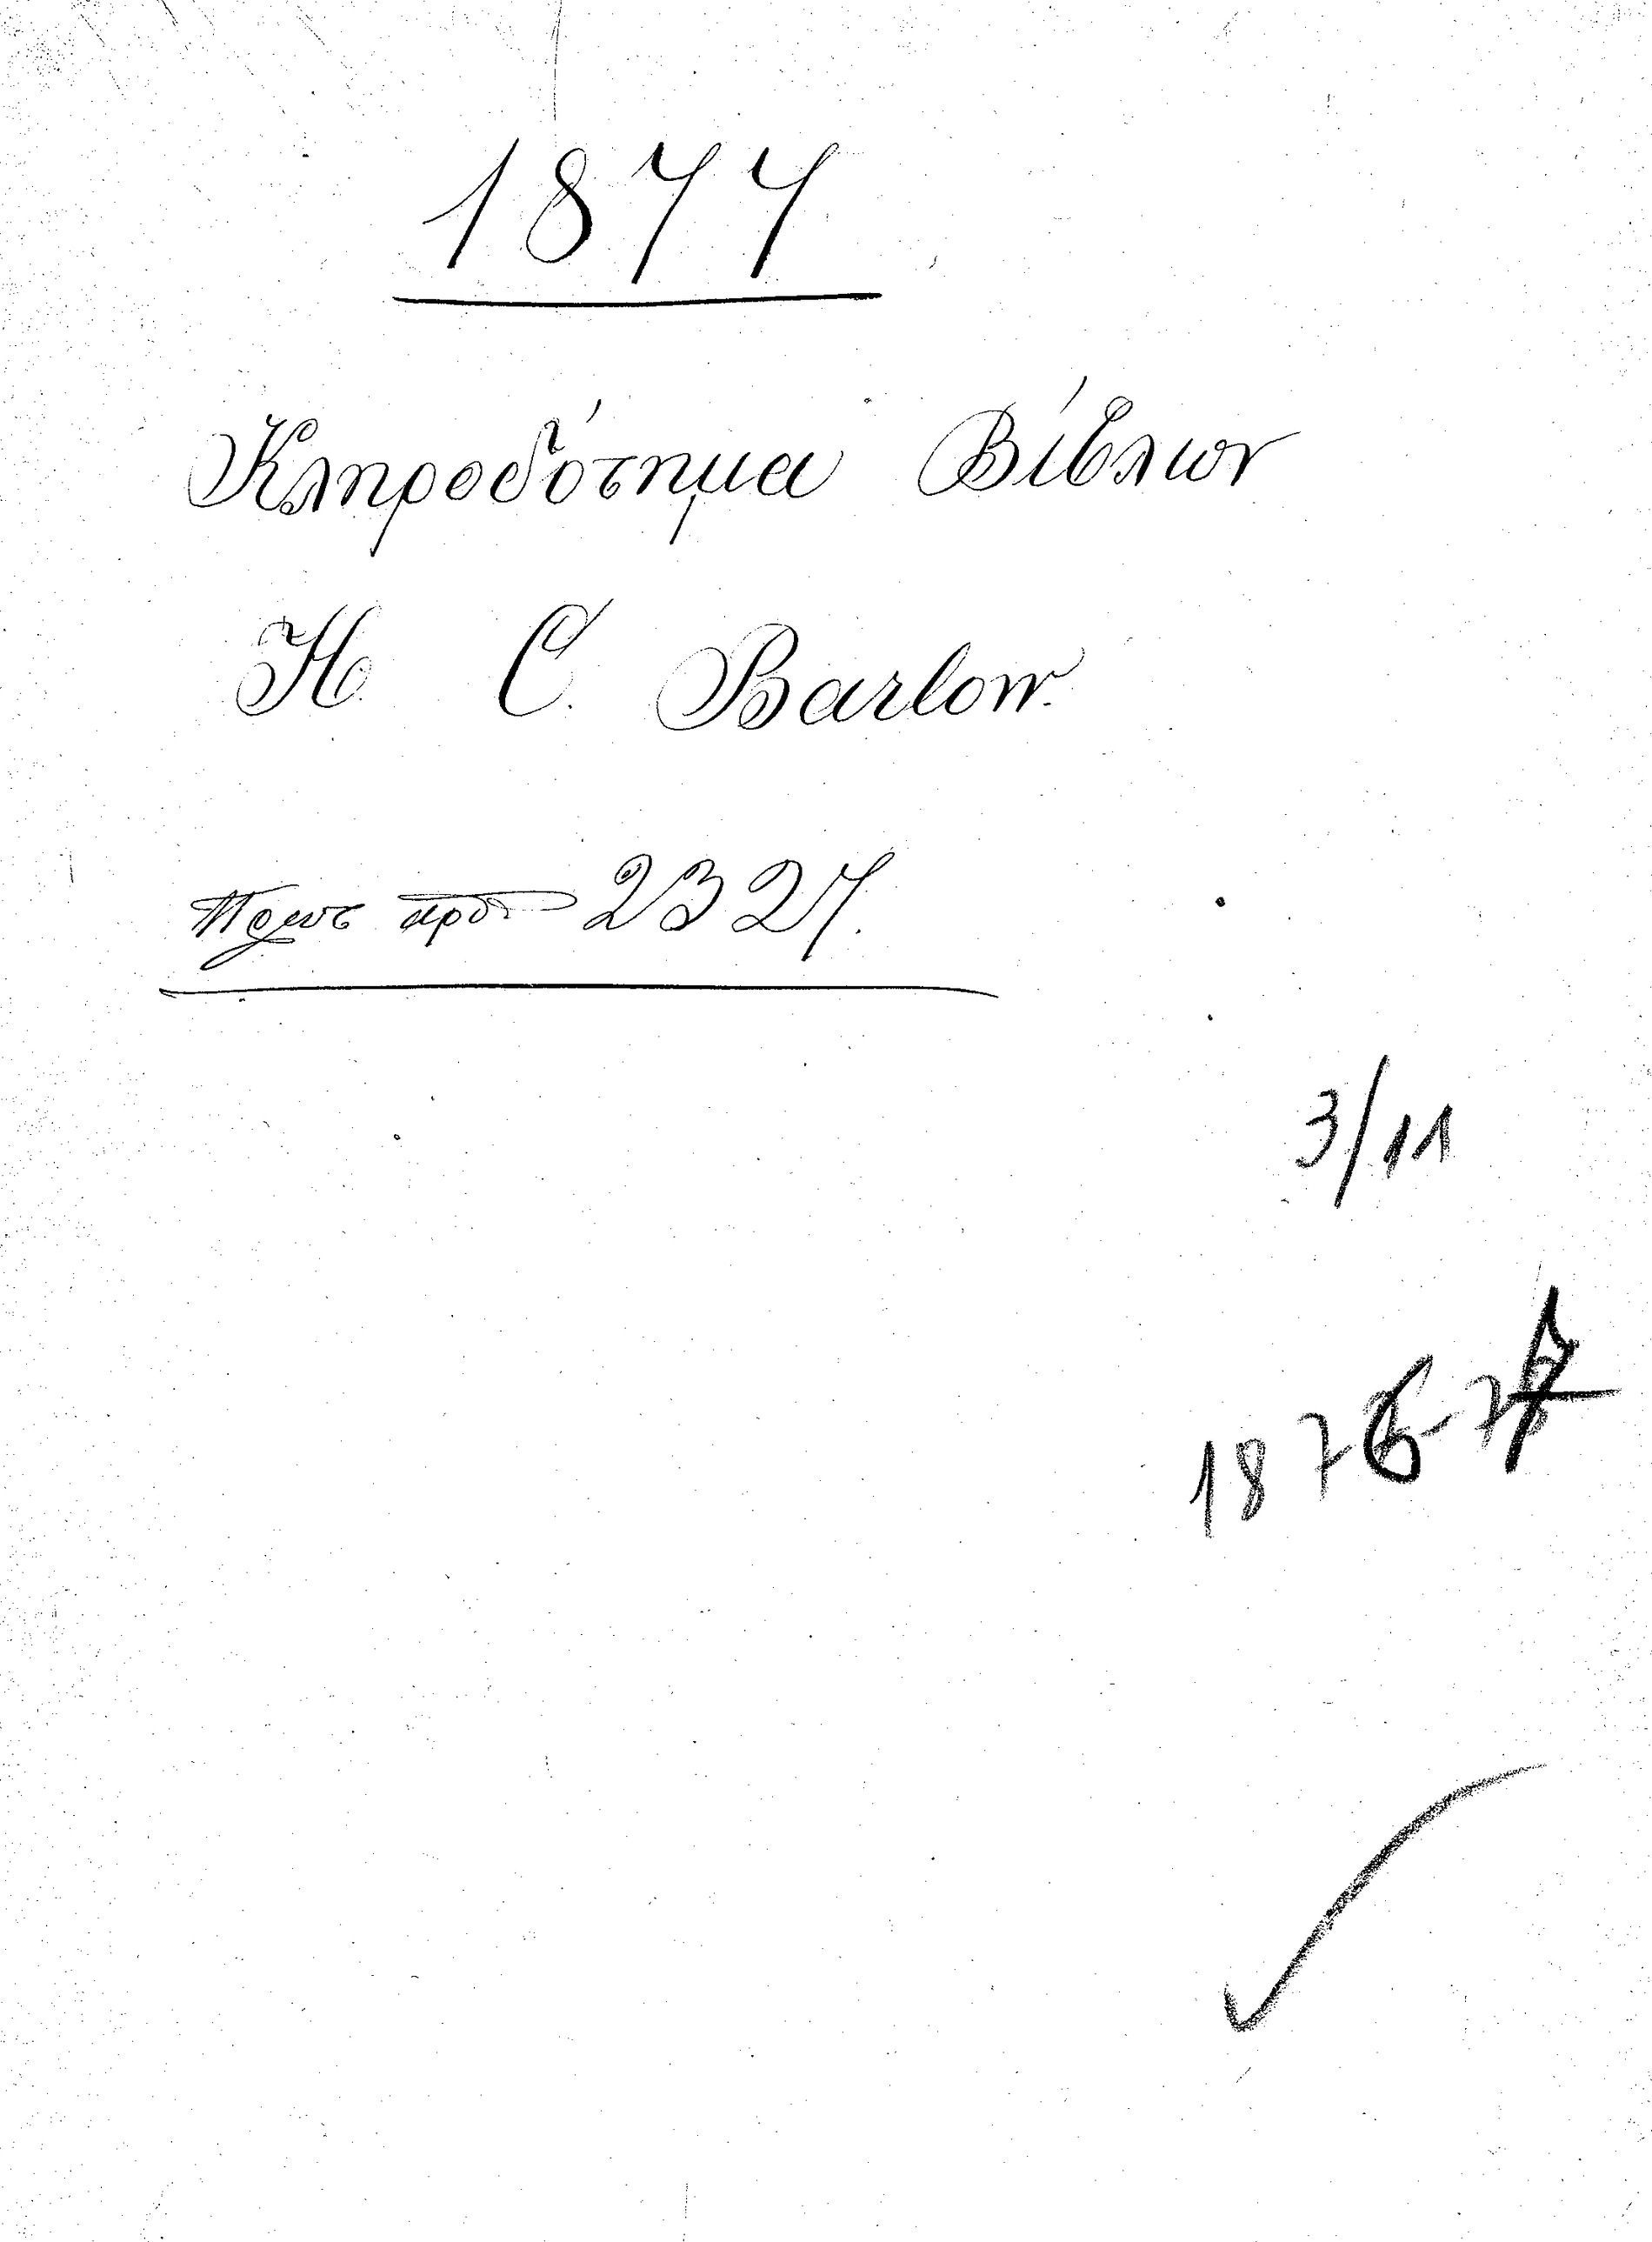 1877
Κληροδότημα Βίβλων
H. C. Barlow.
Πρωτ αρθ 2327.
3/11
1876-77